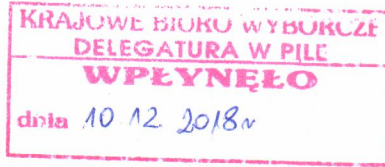 KRAJOWE BIURO WYBORCZE
DELEGATURA W PILE
WPŁYNĘŁO
dnia 10.12.2018r